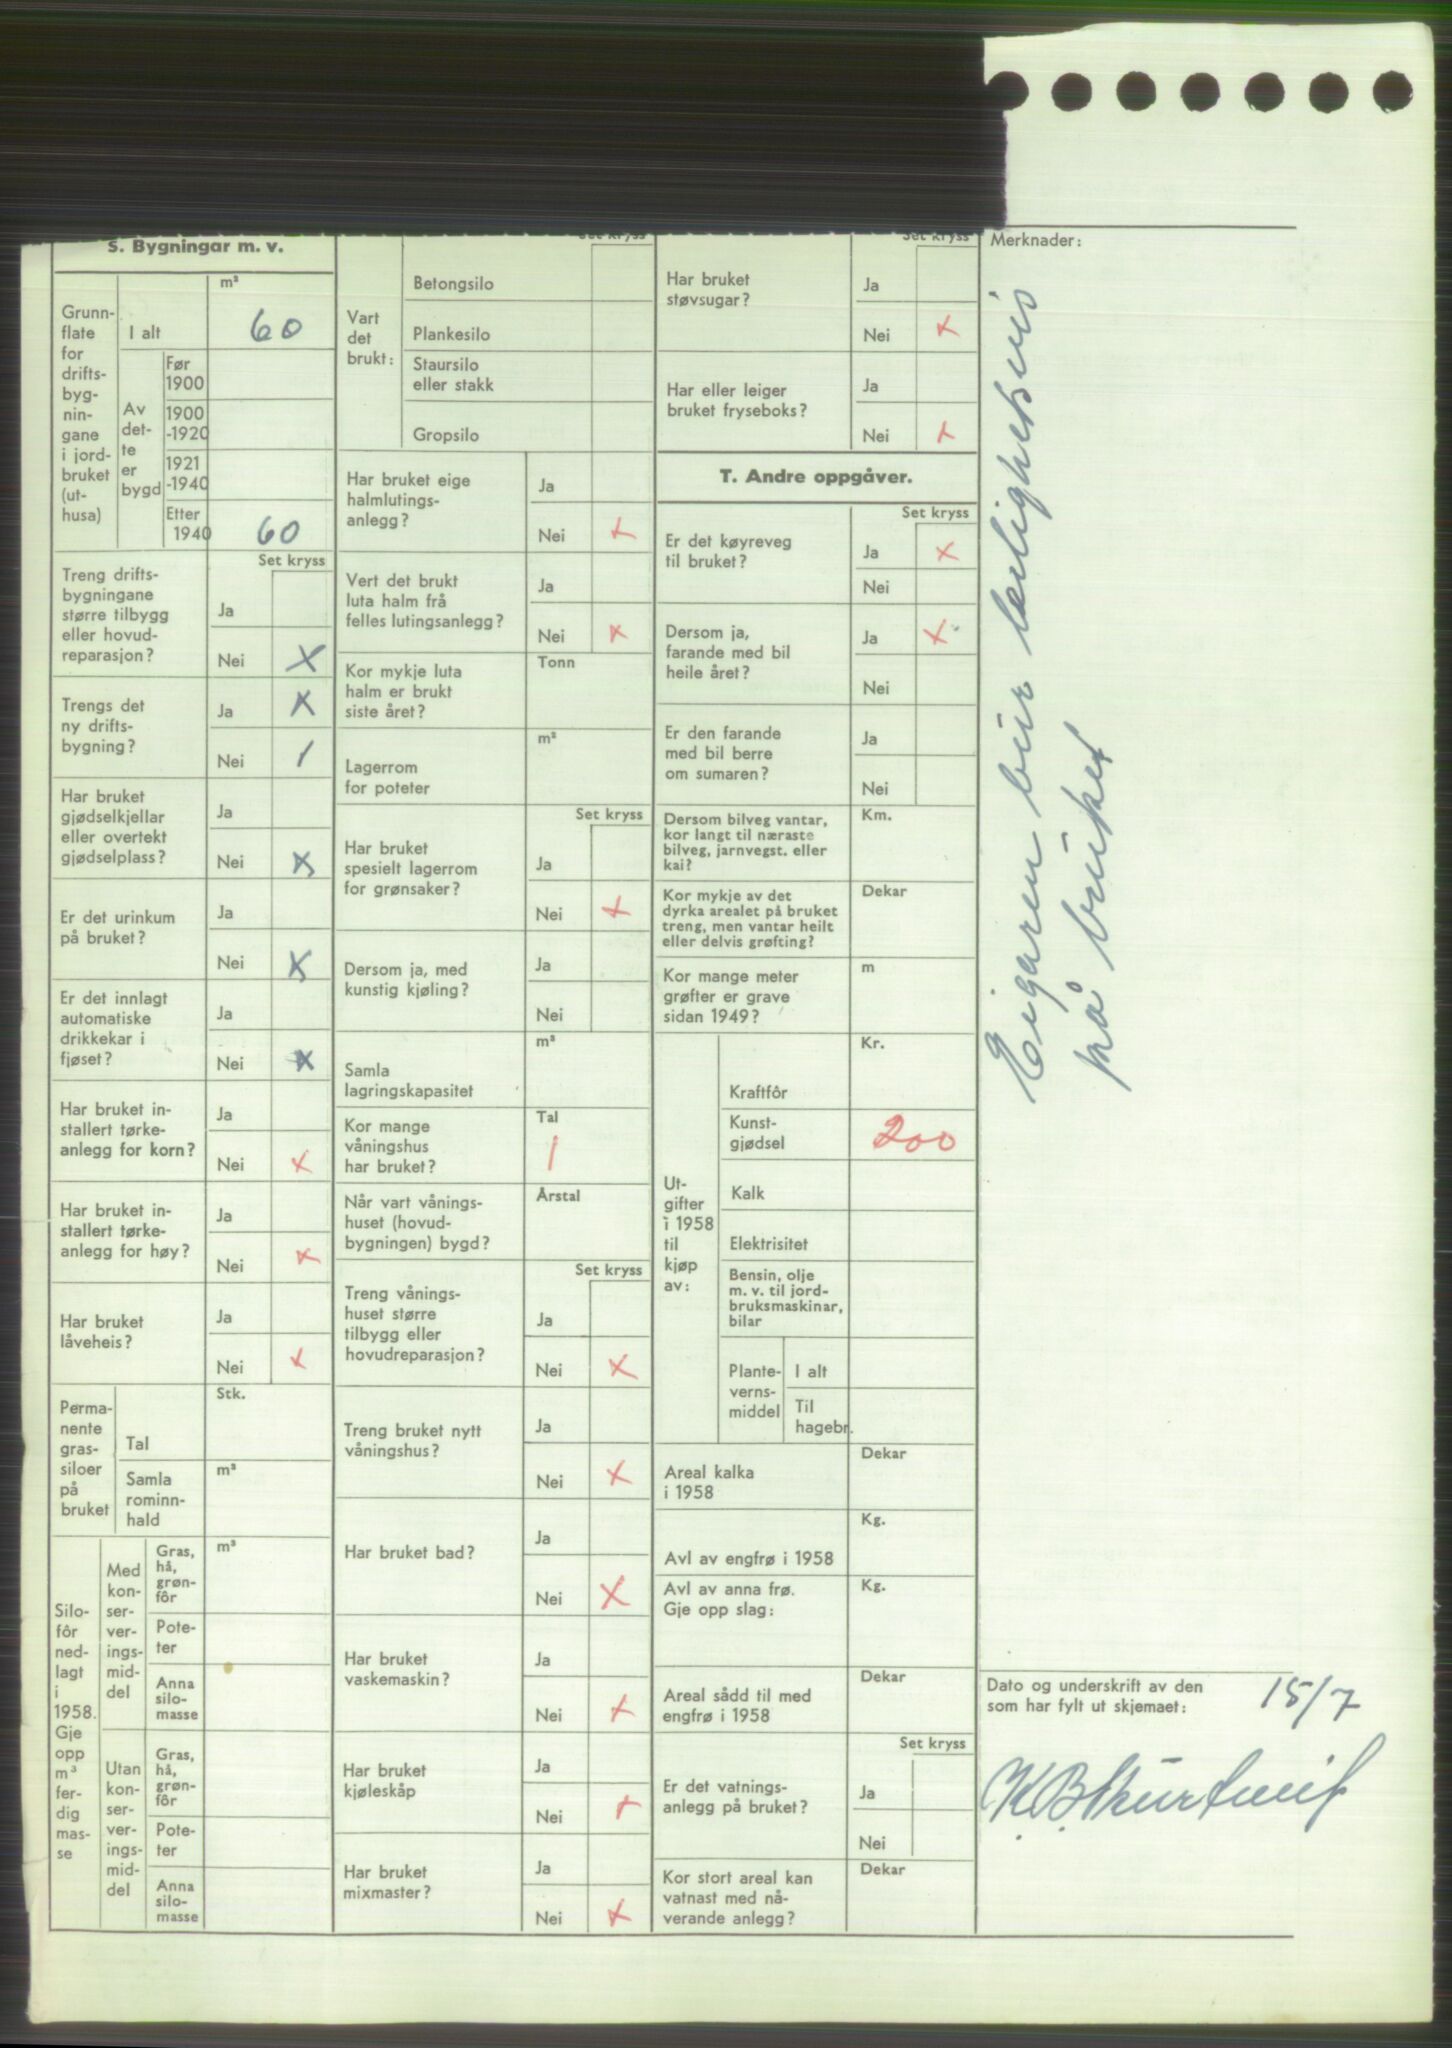 S. Bygningar m. v.
m²
Grunn-
flate
for
drifts-
byg-
nin-
gane
i jord-
bruket
(ut-
husa)
I alt
60
Av
det-
te
er
bygd
Før
1900
1900
-1920
1921
-1940
Etter
1940
60
Set kryss
Treng drifts-
bygningane
større tilbygg
eller hovud-
reparasjon?
Ja
Nei X
Trengs det
ny drifts-
bygning?
Ja X
Nei /
Har bruket
gjødselkjellar
eller overtekt
gjødselplass?
Ja
Nei X
Er det urinkum
på bruket?
Ja
Nei X
Er det innlagt
automatiske
drikkekar i
fjøset?
Ja
Nei X
Har bruket in-
stallert tørke-
anlegg for korn?
Ja
Nei X
Har bruket in-
stallert tørke-
anlegg for høy?
Ja
Nei X
Har bruket
låveheis?
Ja
Nei X
Perma-
nente
gras-
siloer
på
bruket
Stk.
Tal
m³
Samla
rominn-
hald
Silo-
fôr
ned-
lagt
i
1958.
Gje
opp
m³
fer-
dig
mas-
se
Med
kon-
ser-
ver-
ings-
mid-
del
Gras,
hå,
grøn-
fôr
m³
Pote-
ter
Anna
silo-
masse
Utan
kon-
ser-
ver-
ings-
mid-
del
Gras,
hå,
grøn-
fôr
Pote-
ter
Anna
silo-
masse
Set kryss
Vart
det
brukt:
Betongsilo
Plankesilo
Staursilo
eller stakk
Gropsilo
Har bruket eige
halmlutings-
anlegg?
Ja
Nei X
Vert det brukt
luta halm frå
felles lutingsanlegg?
Ja
Nei X
Kor mykje luta
halm er brukt
siste året?
Tonn
Lagerrom
for poteter
m³
Set kryss
Har bruket
spesielt lagerrom
for grønsaker?
Ja
Nei X
Dersom ja, med
kunstig kjøling?
Ja
Nei
Samla
lagringskapasitet
m³
Kor mange
våningshus
har bruket?
Tal
1
Når vart vånings-
huset (hovud-
bygningen) bygd?
Årstal
Set kryss
Treng vånings-
huset større
tilbygg eller
hovudreparasjon?
Ja
Nei X
Treng bruket nytt
våningshus?
Ja
Nei X
Har bruket bad?
Ja
Nei X
Har bruket
vaskemaskin?
Ja
Nei X
Har bruket
kjøleskåp
Ja
Nei X
Har bruket
mixmaster?
Ja
Nei X
Set kryss
Har bruket
støvsugar?
Ja
Nei X
Har eller leiger
bruket fryseboks?
Ja
Nei X
T. Andre oppgåver.
Set kryss
Er det køyreveg
til bruket?
Ja X
Nei
Dersom ja,
farande med bil
heile året?
Ja X
Nei
Er den farande
med bil berre
om sumaren?
Ja
Nei
Dersom bilveg vantar,
kor langt til næraste
bilveg, jarnvegst. eller
kai?
Km.
Kor mykje av det
dyrka arealet på bruket
treng, men vantar heilt
eller delvis grøfting?
Dekar
Kor mange meter
grøfter er grave
sidan 1949?
m
Ut-
gifter
i 1958
til
kjøp
av:
Kr.
Kraftfôr
Kunst-
gjødsel
200
Kalk
Elektrisitet
Bensin, olje
m. v. til jord-
bruksmaskinar,
bilar
Plante-
verns-
middel
I alt
Til
hagebr.
Areal kalka
i 1958
Dekar
Avl av engfrø i 1958
Kg.
Avl av anna frø.
Gje opp slag:
Kg.
Areal sådd til med
engfrø i 1958
Dekar
Set kryss
Er det vatnings-
anlegg på bruket?
Ja
Nei
Kor stort areal kan
vatnast med nå-
verande anlegg?
Dekar
Merknader:
Eigaren bur leilighetsvis
på bruket
Dato og underskrift av den
som har fylt ut skjemaet:
15/7